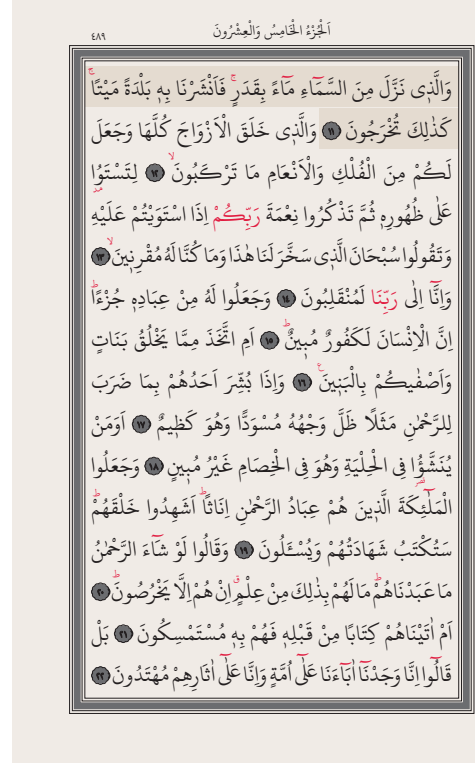 اَلْجُزْءُ الْخَامِسُ وَالْعِشْرُونَ
٤٨٩
وَالَّذٖى نَزَّلَ مِنَ السَّمَٓاءِ مَٓاءً بِقَدَرٍۚ فَاَنْشَرْنَا بِهٖ بَلْدَةً مَيْتًاۚ
كَذٰلِكَ تُخْرَجُونَ ﴿١١﴾ وَالَّذٖى خَلَقَ الْاَزْوَاجَ كُلَّهَا وَجَعَلَ
لَكُمْ مِنَ الْفُلْكِ وَالْاَنْعَامِ مَا تَرْكَبُونَۙ ﴿١٢﴾ لِتَسْتَوُ۫ا
عَلٰى ظُهُورِهٖ ثُمَّ تَذْكُرُوا نِعْمَةَ رَبِّكُمْ اِذَا اسْتَوَيْتُمْ عَلَيْهِ
وَتَقُولُوا سُبْحَانَ الَّذٖى سَخَّرَ لَنَا هٰذَا وَمَا كُنَّا لَهُ مُقْرِنٖينَۙ ﴿١٣﴾
وَاِنَّٓا اِلٰى رَبِّنَا لَمُنْقَلِبُونَ ﴿١٤﴾ وَجَعَلُوا لَهُ مِنْ عِبَادِهٖ جُزْءًاؕ
اِنَّ الْاِنْسَانَ لَكَفُورٌ مُبٖينٌؕ ﴿١٥﴾ اَمِ اتَّخَذَ مِمَّا يَخْلُقُ بَنَاتٍ
وَاَصْفٰيكُمْ بِالْبَنٖينَۚ ﴿١٦﴾ وَاِذَا بُشِّرَ اَحَدُهُمْ بِمَا ضَرَبَ
لِلرَّحْمٰنِ مَثَلًا ظَلَّ وَجْهُهُ مُسْوَدًّا وَهُوَ كَظٖيمٌ ﴿١٧﴾ اَوَمَنْ
يُنَشَّؤُ۬ا فِى الْحِلْيَةِ وَهُوَ فِى الْخِصَامِ غَيْرُ مُبٖينٍ ﴿١٨﴾ وَجَعَلُوا
الْمَلٰٓئِكَةَ الَّذٖينَ هُمْ عِبَادُ الرَّحْمٰنِ اِنَاثًاؕ اَشَهِدُوا خَلْقَهُمْؕ
سَتُكْتَبُ شَهَادَتُهُمْ وَيُسْـَٔلُونَ ﴿١٩﴾ وَقَالُوا لَوْ شَٓاءَ الرَّحْمٰنُ
مَا عَبَدْنَاهُمْؕ مَا لَهُمْ بِذٰلِكَ مِنْ عِلْمٍۗ اِنْ هُمْ اِلَّا يَخْرُصُونَؕ ﴿٢٠﴾
اَمْ اٰتَيْنَاهُمْ كِتَابًا مِنْ قَبْلِهٖ فَهُمْ بِهٖ مُسْتَمْسِكُونَ ﴿٢١﴾ بَلْ
قَالُٓوا اِنَّا وَجَدْنَٓا اٰبَٓاءَنَا عَلٰٓى اُمَّةٍ وَاِنَّا عَلٰٓى اٰثَارِهِمْ مُهْتَدُونَ ﴿٢٢﴾